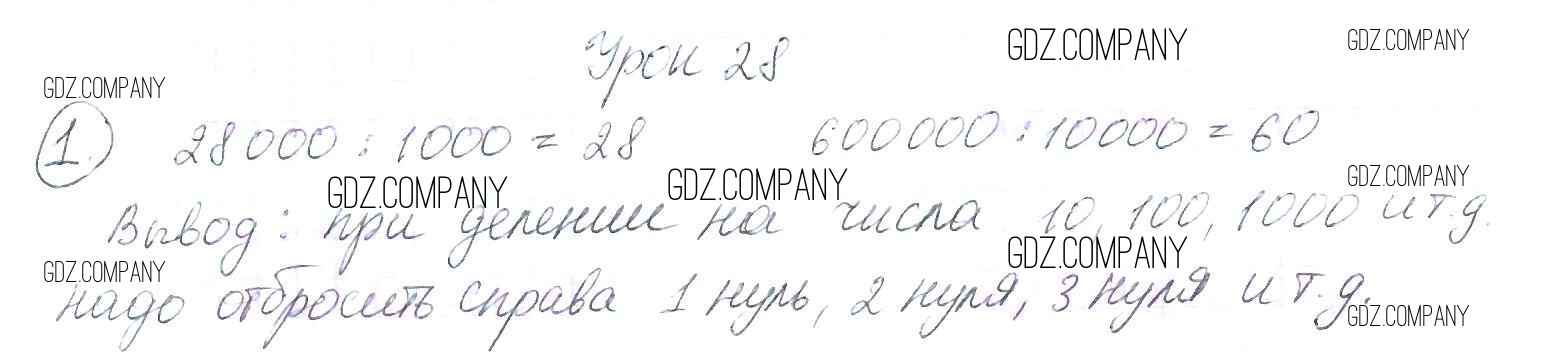 Урок 28
GDZ.COMPANY
GDZ.COMPANY
GDZ.COMPANY
1. 28000 : 1000 = 28 600000 : 10000 = 60
GDZ.COMPANY
GDZ.COMPANY
GDZ.COMPANY
Вывод: при делении на числа 10, 100, 1000 и т.д.
GDZ.COMPANY
GDZ.COMPANY
надо отбросить справа 1 нуль, 2 нуля, 3 нуля и т.д.
GDZ.COMPANY